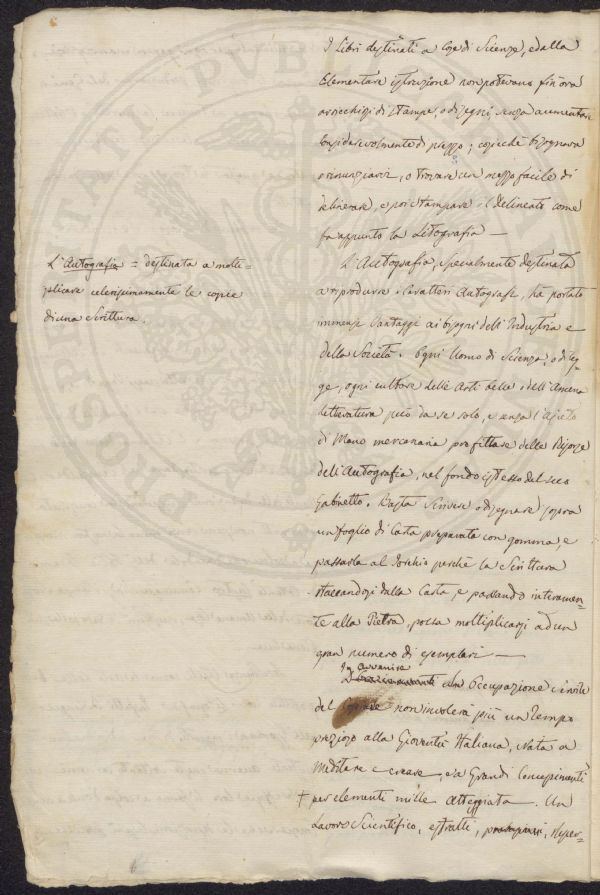 I Libri destinati a Cose di Scienze, e dalla
Elementare istruzione non potevano fin'ora
arricchirsi di Stampe, o disegni, senza aumentare
considerevolmente di prezzo; cosicchè bisognava
o rinunziarvi, o trovare un mezzo facile di
delineare, e poi stampare il delineato come
fa appunto la Litografia —
L'Autografia = destinata a molti=
plicare celerissimamente le copie
di una Scrittura.
L'Autografia, specialmente destinata
a riprodurre i Caratteri Autografi, ha portato
immensi Vantaggi ai bisogni dell'Industria e
della Società. Ogni Uomo di Scienza, o di leg-
ge, ogni cultore delle Arti belle, o dell'Amena
Letteratura può da se solo, e senza l'Ajuto
di Mano mercenaria profittare delle Risorse
dell'Autografia, nel fondo istesso del suo
Gabinetto. Basta Scrivere o disegnare sopra
un foglio di Carta preparata con gomma, e
passarla al Torchio perchè la Scrittura
staccandosi dalla Carta, e passando interamen-
te alla Pietra, possa moltiplicarsi ad un
gran numero di esemplari —
In avvenire
un'Occupazione servile
del non involerà più un Tempo
prezioso alla Gioventù Italiana, Nata a
Meditare e creare, e a Grandi Concepimenti
+ per elementi mille atteggiata. Un
Lavoro Scientifico, estratti,